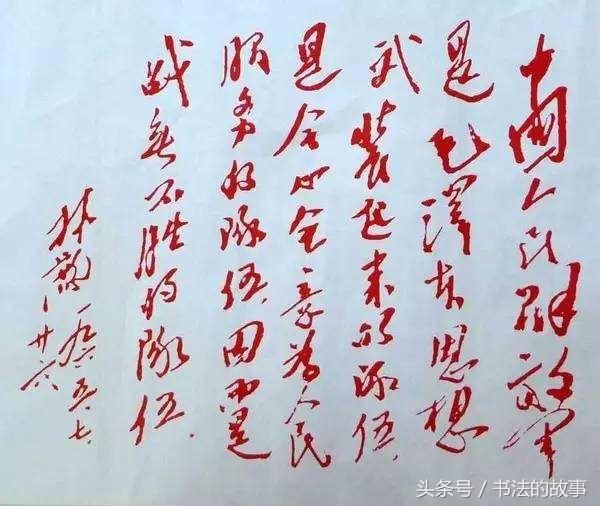 中國人民解放军
是毛澤东思想
武装起来的隊伍，
是全心全意为人民
服务的隊伍，因而是
战無不胜的隊伍．
林彪 一九六五．七．
廿六
头条号 / 书法的故事